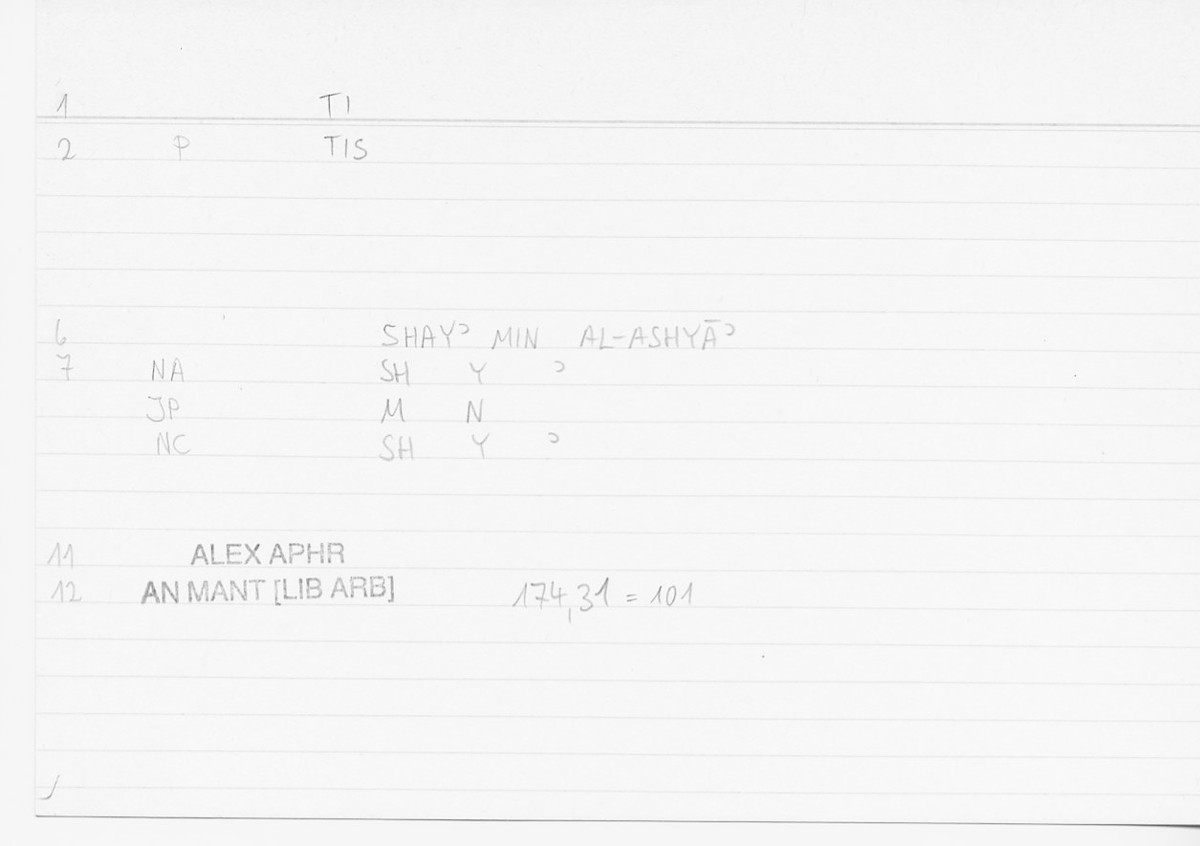 1 TI
2 P TIS
6 SHAYʾ MIN AL-ASHYĀʾ
7 NA SH Y ʾ
JP M N
NC SH Y ʾ
11 ALEX APHR
12 AN MANT [LIB ARB] 174,31 = 101